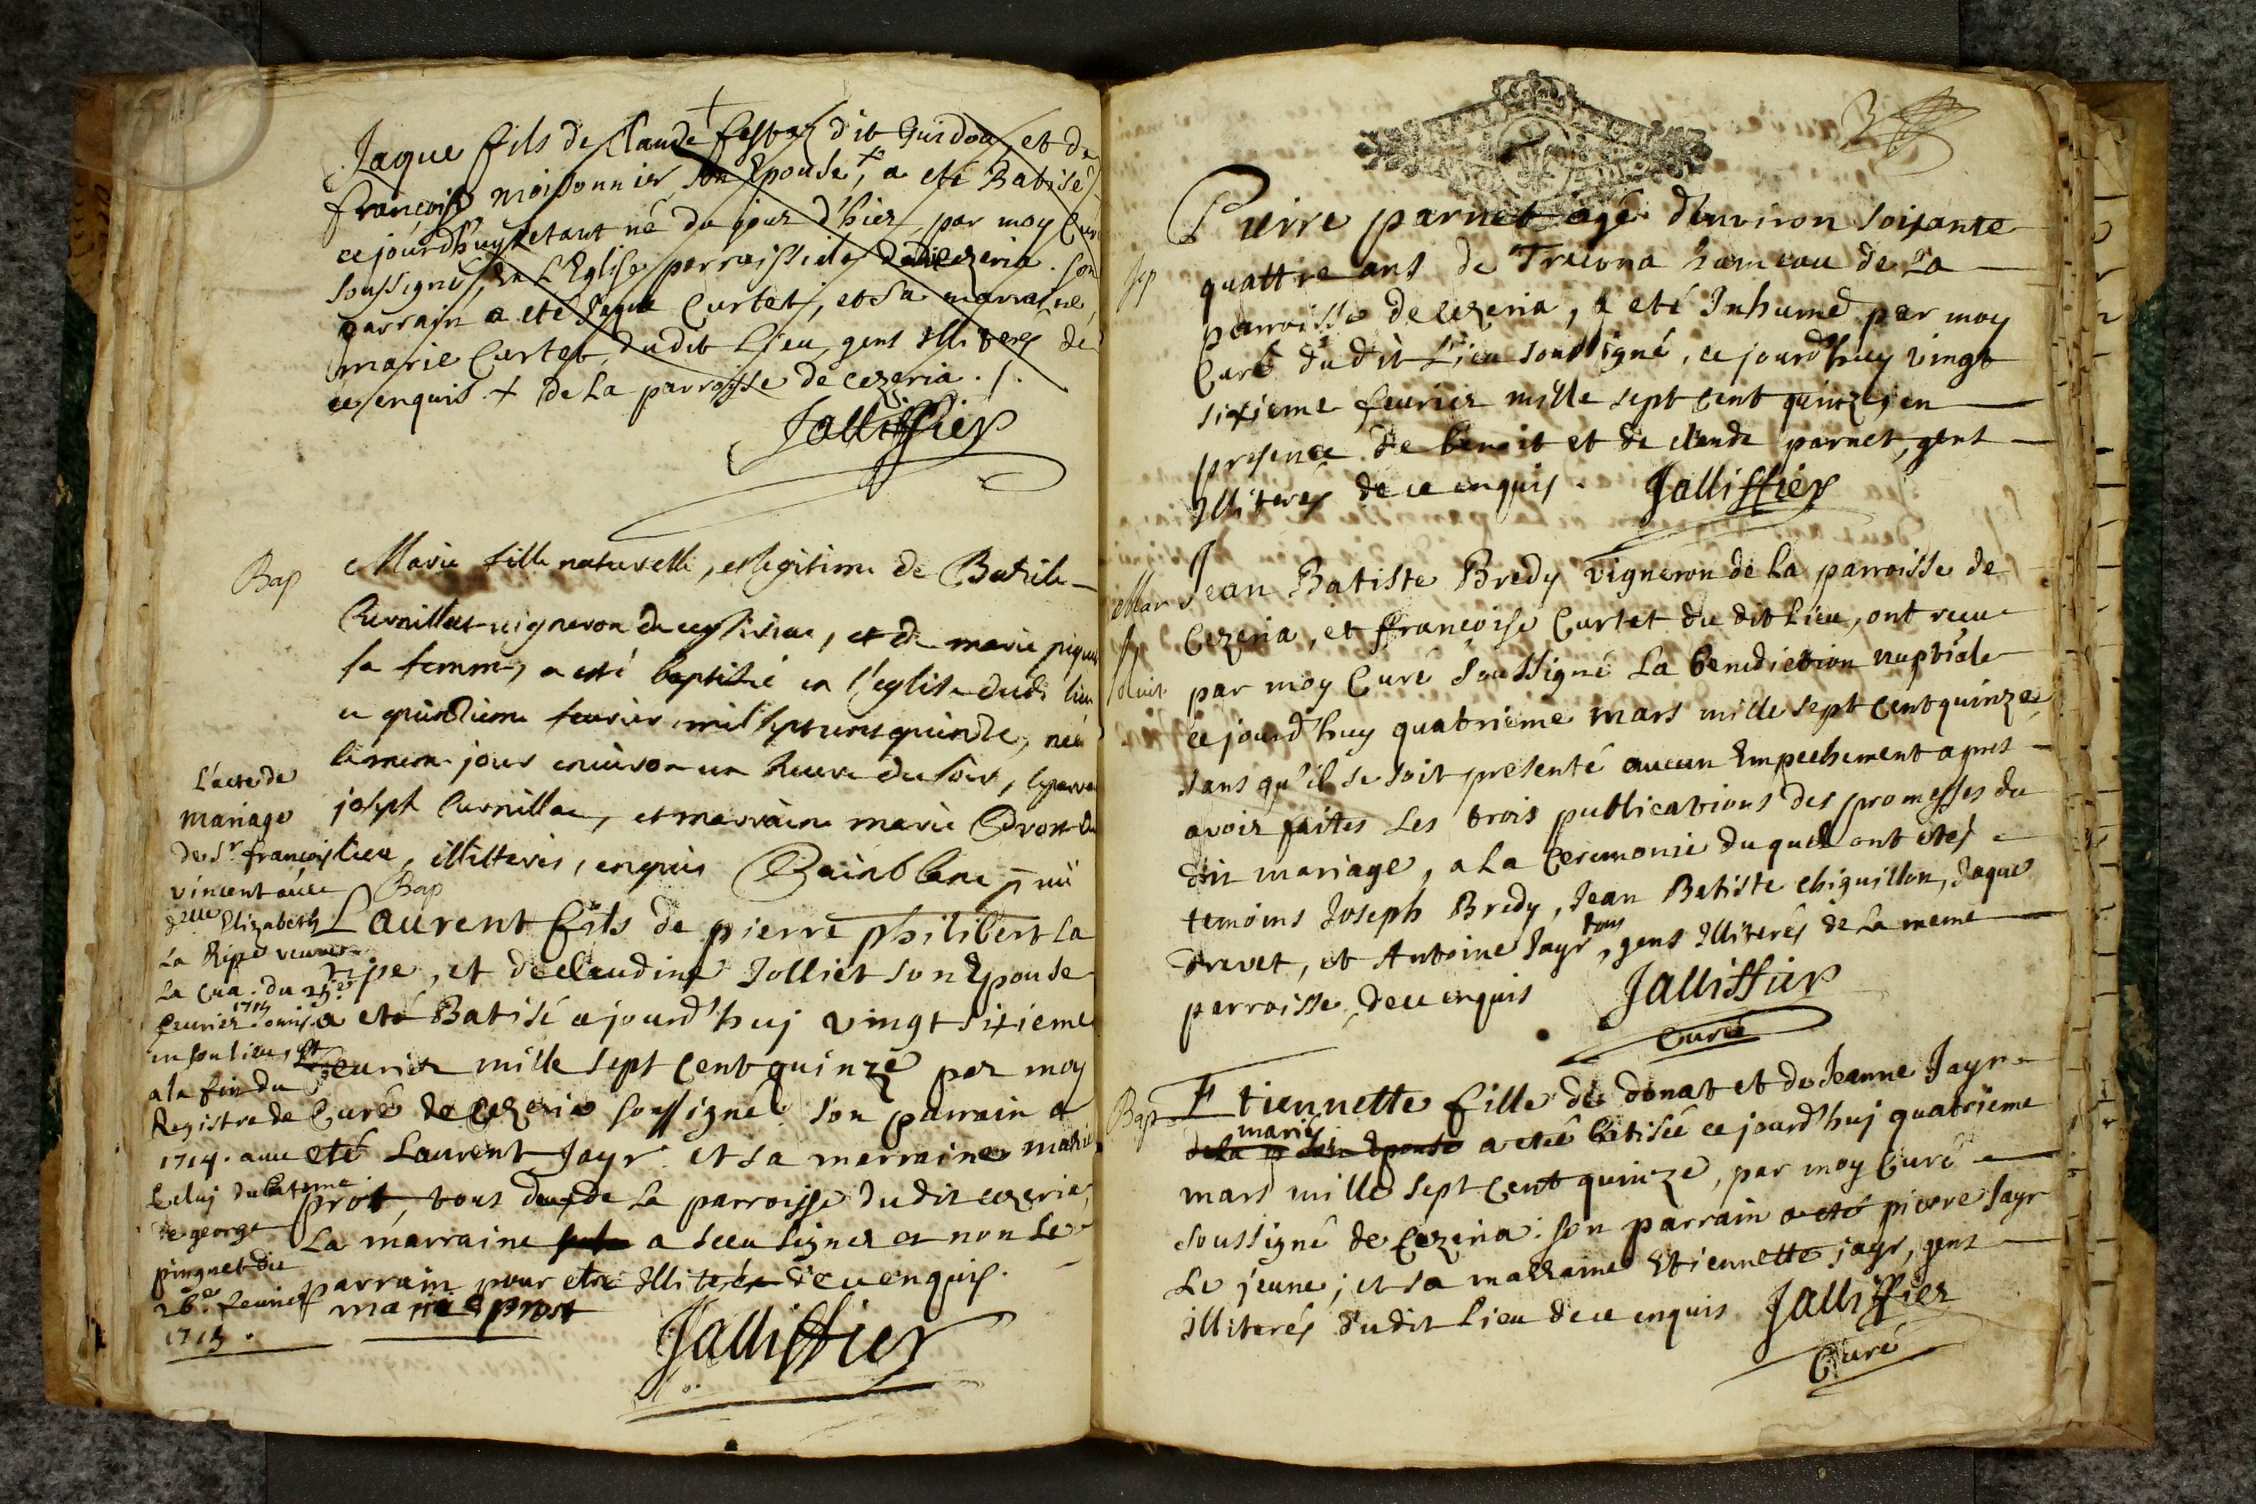 Jaque fils de Claude + festaz dit Guidou, et de
françoise moissonnier son Epouse, + a eté Batisé
ce jourd'huy etant né du jour d'hier, par moy Curé
soussigné, en L'Eglise parroissiale de cezeria. son
parrain a eté Jaque Curtet, et sa marraine,
marie Curtet, dudit Lieu, gens illiterés de
ce enquis. + de la parroisse de cezeria ./.
Jalliffier
Bap
Marie fille naturelle, et legitime de Batiste
Curnillat vigneron de ceysseriac, et de marie piquet
sa femme, a esté baptisée en l'eglise dudi lieu
ce quinzieme feurier mil sept cens quinze, née
le mesme jour enuiron un heure du soir, le parrain
joseph Curnillat, et marraine marie Prost du
lieu, illitteres, enquis
L'acte de
mariage
de Sr. françois
vincent auec
dlle Elizabeth
La Ripe veuue
La Cua. du 25e
feurier 1715 omis
en son lieu, est
a la fin du
Registre de
1714. auec
Celuj du bateme
de george
pingnet du
26e feurier
1715.
Bap
Laurent fils de pierre philibert La
ripe, et de claudine Jolliet son Epouse
a eté Batisé ce jourd'huj vingt sixieme
feurier mille sept Cent quinze par moy
Curé de Cezeria soussigné. son parrain a
eté Laurent Jayr et sa marraine marie
prot, tous deux de la parroisse dudit cezeria,
La marraine a sceu signer et non le
parrain pour etre illiteré de ce enquis.
marie prost
Jalliffier
Sep
Pierre parnet agé d'enuiron soixante
quattre ans de Treconna hameau de la
parroisse de cezeria, a eté Inhumé par moy
Curé du dit Lieu soussigné, ce jourd'huy vingt
sixieme feurier mille sept Cent quinze, en
presence de benoit et de claude parnet, gens
illiterés de ce enquis.
Jalliffier
Mar
Jean Batiste Bredy vigneron de la parroisse de
Cezeria, et françoise Curtet du dit Lieu, ont receu
par moy Curé soussigné La benediction nuptiale
ce jourd'huy quatrieme mars mille sept Cent quinze
sans qu'il se soit presenté aucun Empechement apres
avoir faites Les trois publications des promesses du
dit mariage, a la Ceremonie duquel ont etés
temoins Joseph Bredy, Jean Batiste chiguillon, Jaque
Drevet, et Antoine Jayr, tous gens illiterés de la meme
parroisse, de ce enquis
Jalliffier
Curé
Bap
Etiennette fille de donat et de Jeanne Jayr
mariés a eté batisée ce jourd'huj quatrieme
mars mille sept Cent quinze, par moy Curé
soussigné de Cezeria. son parrain a eté pierre Jayr
Le jeune, et sa marraine Etiennette jayr, gens
illiterés dudit Lieu de ce enquis
Jalliffier
Curé